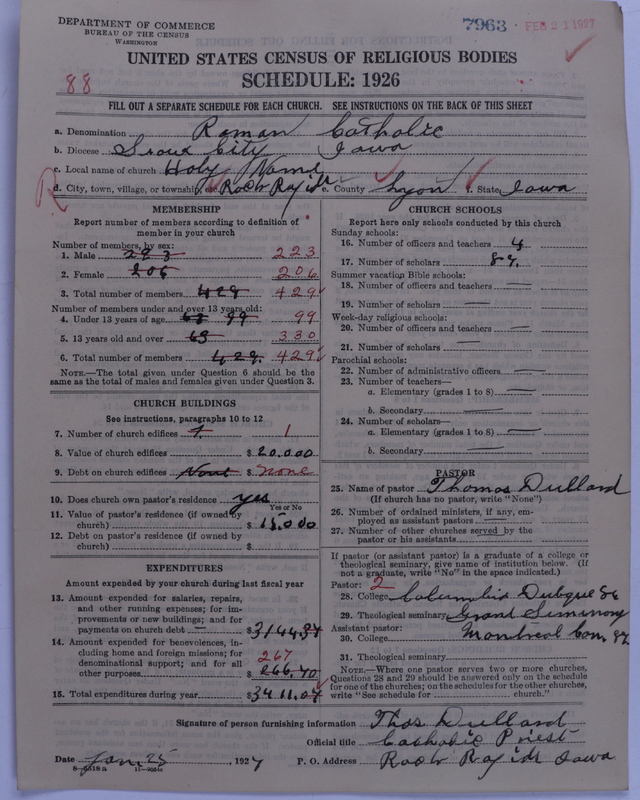 DEPARTMENT OF COMMERCE
BUREAU OF THE CENSUS
WASHINGTON
7963 FEB 21 1927
UNITED STATES CENSUS OF RELIGIOUS BODIES
SCHEDULE: 1926
88
FILL OUT A SEPARATE SCHEDULE FOR EACH CHURCH. SEE INSTRUCTIONS ON THE BACK OF THIS SHEET
a. Denomination Roman Catholic
b. Diocese Sioux City Iowa
c. Local name of church Holy Name
d. City, town, village, or township, etc. Rock Rapids e. County Lyon f. State Iowa
MEMBERSHIP
Report number of members according to definition of member in your church
Number of members, by sex:
1. Male 223 223
2. Female 206 206
3. Total number of members 429 429
Number of members under and over 13 years old:
4. Under 13 years of age 99 99
5. 13 years old and over 330
6. Total number of members 429 429
NOTE.—The total given under Question 6 should be the same as the total of males and females given under Question 3.
CHURCH BUILDINGS
See instructions, paragraphs 10 to 12
7. Number of church edifices 1. 1
8. Value of church edifices $20.000
9. Debt on church edifices None $ none
10. Does church own pastor's residence yes
Yes or No
11. Value of pastor's residence (if owned by church) $15.000
12. Debt on pastor's residence (if owned by church) $
EXPENDITURES
Amount expended by your church during last fiscal year
13. Amount expended for salaries, repairs, and other running expenses; for improvements or new buildings; and for payments on church debt $3144.37
14. Amount expended for benevolences, including home and foreign missions; for denominational support; and for all other purposes 267 $266.70
15. Total expenditures during year $3411.07
CHURCH SCHOOLS
Report here only schools conducted by this church
Sunday schools:
16. Number of officers and teachers 4
17. Number of scholars 87.
Summer vacation Bible schools:
18. Number of officers and teachers —
19. Number of scholars —
Week-day religious schools:
20. Number of officers and teachers —
21. Number of scholars —
Parochial schools:
22. Number of administrative officers —
23. Number of teachers—
a. Elementary (grades 1 to 8) —
b. Secondary —
24. Number of scholars—
a. Elementary (grades 1 to 8) —
b. Secondary —
PASTOR
25. Name of pastor Thomas Dullard
(If church has no pastor, write "None")
26. Number of ordained ministers, if any, employed as assistant pastors —
27. Number of other churches served by the pastor or his assistants —
If pastor (or assistant pastor) is a graduate of a college or theological seminary, give name of institution below. (If not a graduate, write "No" in the space indicated.)
Pastor: 2
28. College Columbia Dubque
29. Theological seminary Grand Seminary
Assistant pastor: Montreal Can.
30. College
31. Theological seminary
NOTE.—Where one pastor serves two or more churches, Questions 28 and 29 should be answered only on the schedule for one of the churches; on the schedules for the other churches, write "See schedule for church."
Signature of person furnishing information Thos Dullard
Official title Catholic Priest
Date Jan. 25, 1927 P. O. Address Rock Rapids Iowa